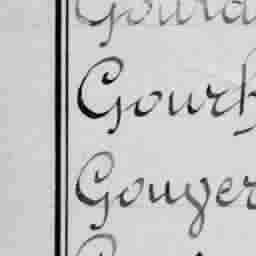 Gourd
Gourh
Gouyer